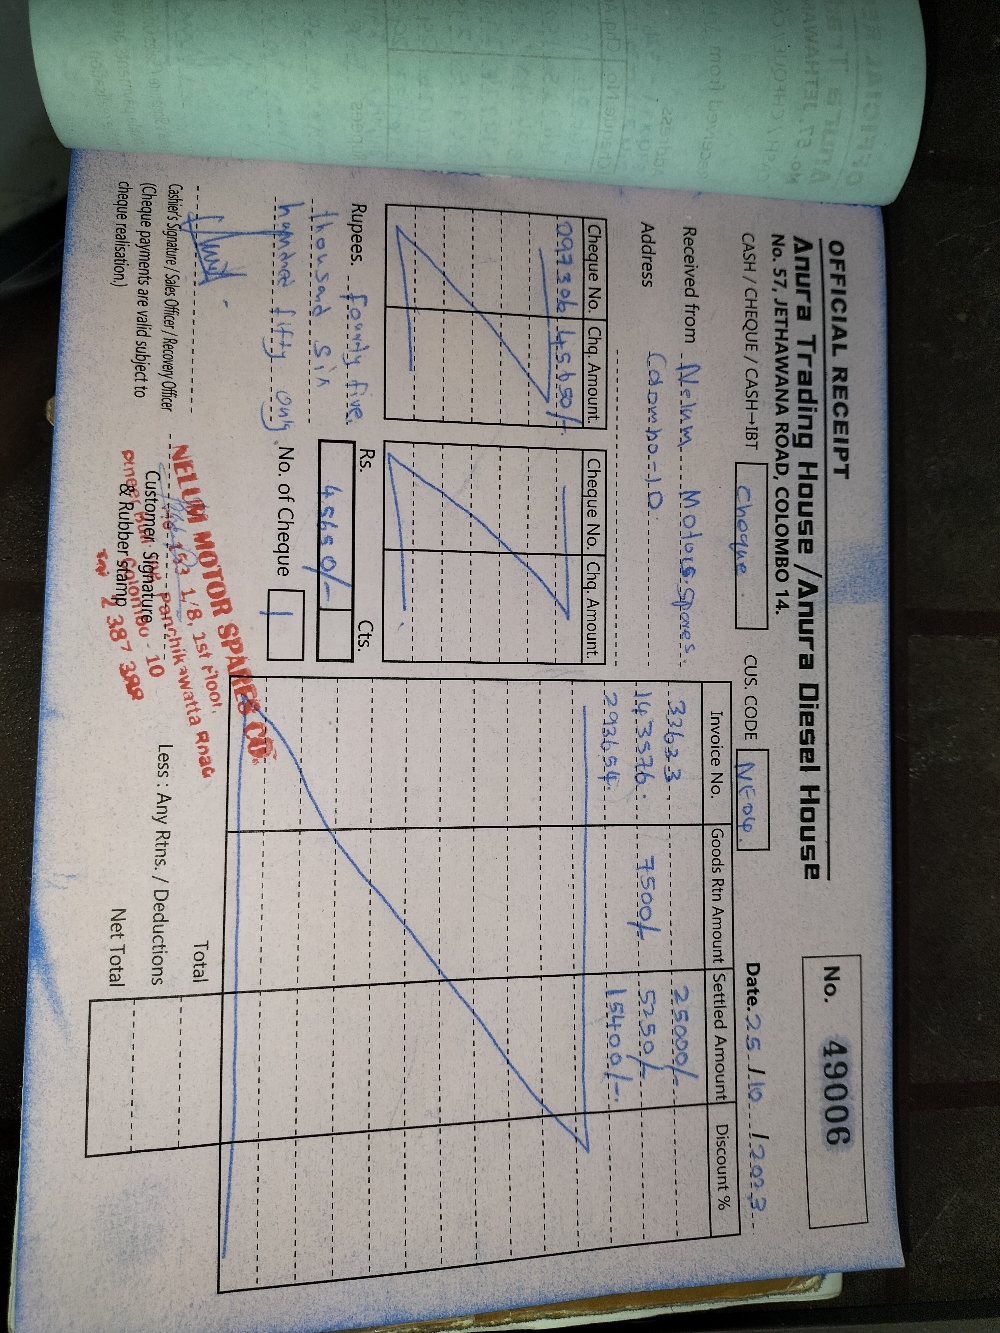 OFFICIAL RECEIPT
Anura Trading House / Anura Diesel House
No. 57, JETHAWANA ROAD, COLOMBO 14.
No. 49006
CASH / CHEQUE / CASH→IBT Cheque.
CUS. CODE NE04.
Date. 25 / 10 / 2023
Received from Nelum Motors Spares.
Address Colombo-10.
Cheque No. Chq. Amount. Cheque No. Chq. Amount.
097306 45650/-
Invoice No. Goods Rtn Amount Settled Amount Discount %
33623 25000/-
143576. 7500/- 5250/-
293654. 15400/-.
Rupees. Fourty five
thousand six
hundred fifty only.
Rs. Cts.
45650/-
No. of Cheque 1
Cashier's Signature / Sales Officer / Recovery Officer
(Cheque payments are valid subject to
cheque realisation.)
Customer Signature
& Rubber stamp
NELUM MOTOR SPARES CO.
1/8, 1st Floor,
Panchikawatta Road
Colombo - 10
2 387 388
Total
Less : Any Rtns. / Deductions
Net Total